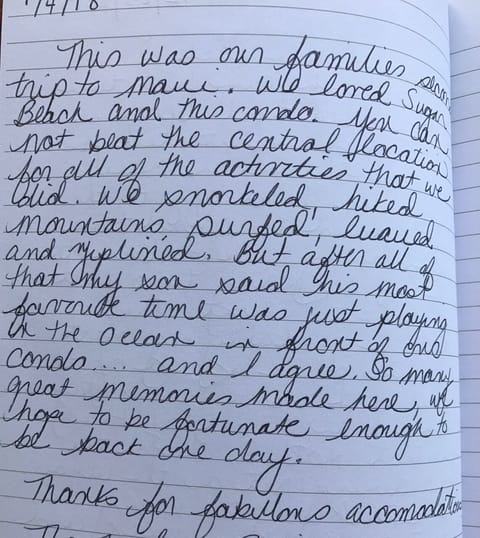 1/4/18
This was our families second
trip to Maui. We loved Sugar
Beach and this condo. You can
not beat the central location
for all of the activities that we
did. We snorkeled, hiked
mountains, surfed, luaued
and ziplined. But after all of
that my son said his most
favourite time was just playing
in the ocean in front of our
condo.... and I agree. So many
great memories made here, we
hope to be fortunate enough to
be back one day.
Thanks for fabulous accomodations